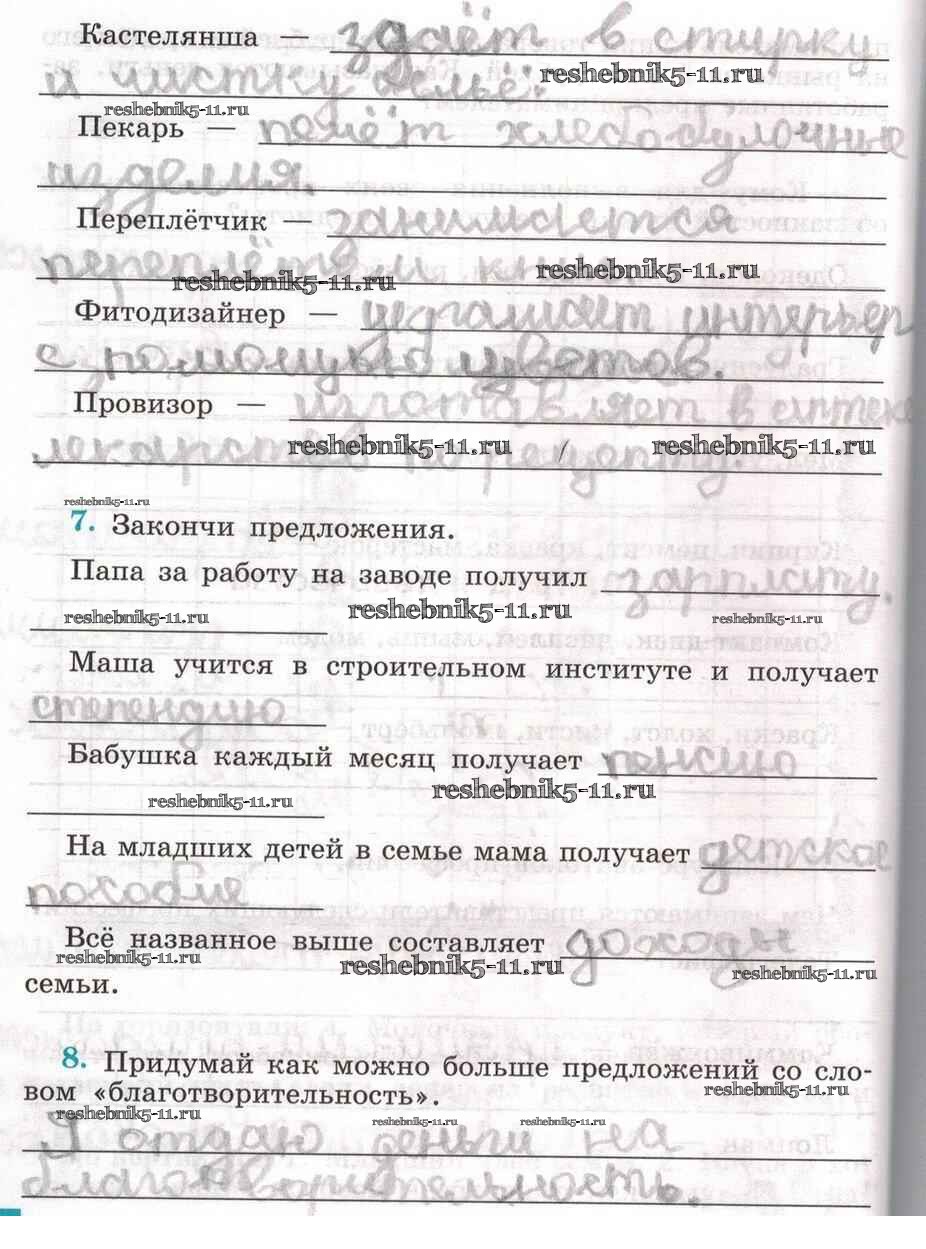 Кастелянша — здаёт в стирку
и чистку бельё.
reshebnik5-11.ru
reshebnik5-11.ru
Пекарь — печёт хлебобулочные
изделия.
Переплётчик — занимается
переплётом книг
reshebnik5-11.ru reshebnik5-11.ru
Фитодизайнер — украшает интерьер
с помощью цветов.
Провизор — изготовляет в аптеке
лекарства по рецепту.
reshebnik5-11.ru reshebnik5-11.ru
reshebnik5-11.ru
7. Закончи предложения.
Папа за работу на заводе получил зарплату.
reshebnik5-11.ru reshebnik5-11.ru reshebnik5-11.ru
Маша учится в строительном институте и получает
степендию
Бабушка каждый месяц получает пенсию
reshebnik5-11.ru reshebnik5-11.ru
На младших детей в семье мама получает детское
пособие
Всё названное выше составляет доходы
reshebnik5-11.ru reshebnik5-11.ru reshebnik5-11.ru
семьи.
8. Придумай как можно больше предложений со сло-
вом «благотворительность».
reshebnik5-11.ru
reshebnik5-11.ru reshebnik5-11.ru reshebnik5-11.ru
Я отдаю деньги на
благотворительность.